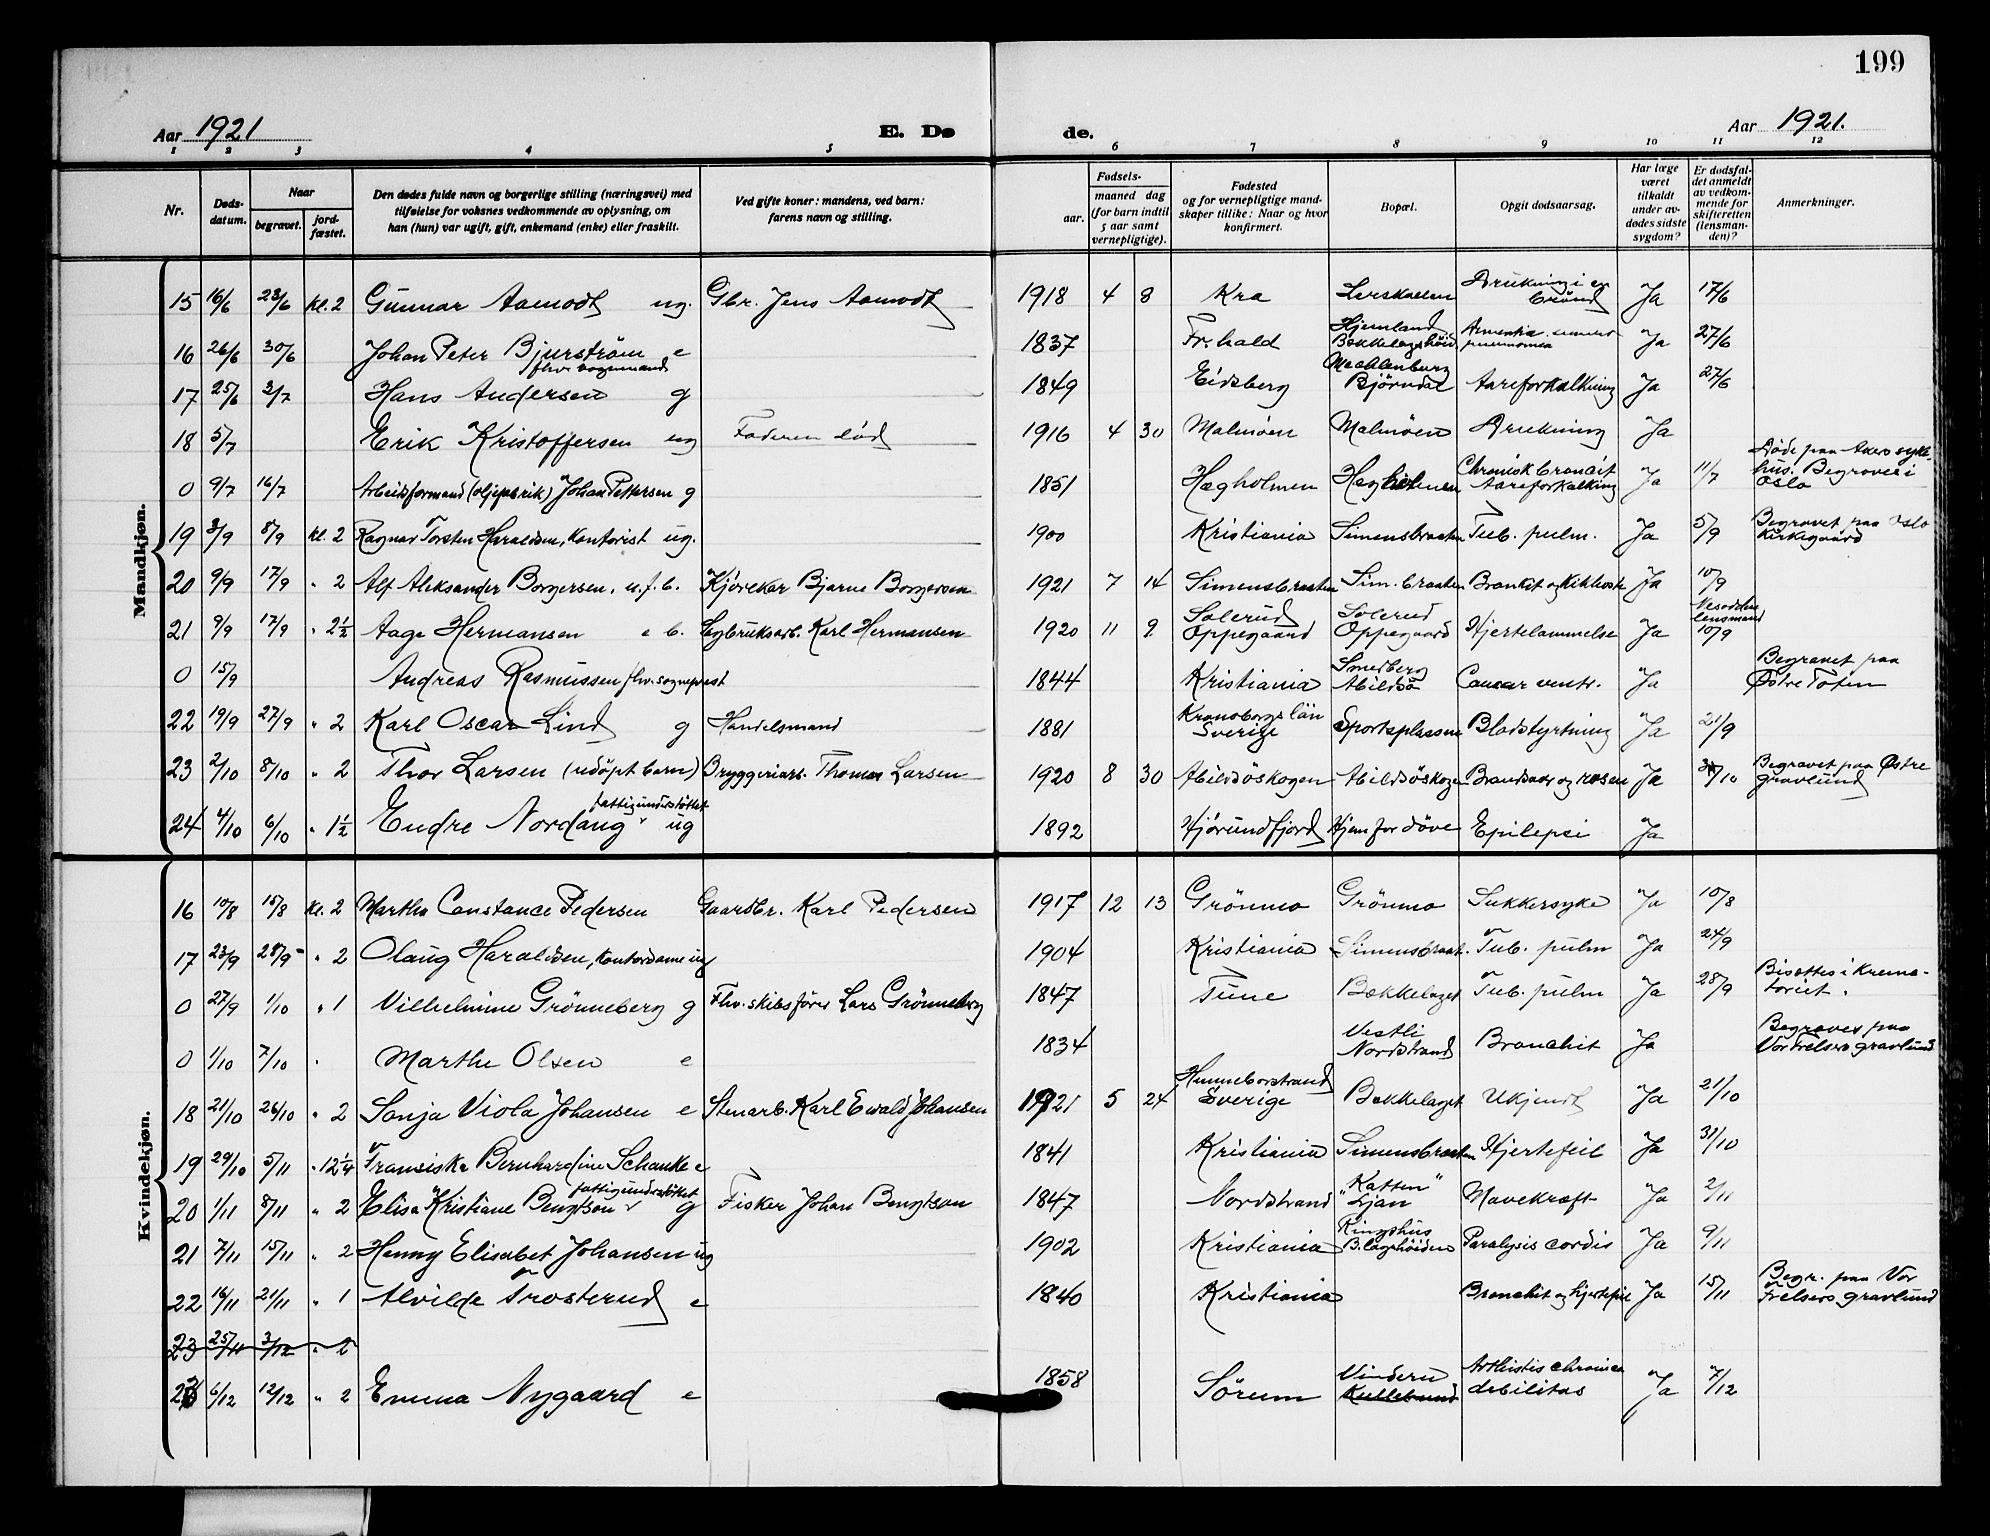 199
Aar 1921
E. Dø
de.
Aar 1921.
1 2 3 4 5 6 7 8 9 10 11 12
Nr.
Døds-
datum.
Naar
begravet.
jord-
fæstet.
Den dødes fulde navn og borgerlige stilling (næringsvei) med
tilføielse for voksnes vedkommende av oplysning, om
han (hun) var ugift, gift, enkemand (enke) eller fraskilt.
Ved gifte koner: mandens, ved barn:
farens navn og stilling.
Fødsels-
aar.
maaned dag
(for barn indtil
5 aar samt
vernepligtige).
Fødested
og for vernepligtige mand-
skaper tillike: Naar og hvor
konfirmert.
Bopæl.
Opgit dødsaarsag.
Har læge
været
tilkaldt
under av-
dødes sidste
sygdom?
Er dødsfal-
det anmeldt
av vedkom-
mende for
skifteretten
(lensman-
den)?
Anmerkninger.
Mandkjøn.
15 16/6 23/6 kl. 2 Gunnar Aamodt ug. Gbr. Jens Aamodt 1918 4 8 Kra Lerskallen Drukning i en brønd Ja 17/6
16 26/6 30/6 Johan Peter Bjurström e 1837 Fr.hald Hjemland Bekkelagshöid. pneumonia Ja 27/6
fhv.
17 25/6 2/7 Hans Andersen g 1849 Eidsberg Mecklenburg Björndal Aareforkalkning Ja 27/6
18 5/7 Erik Kristoffersen ug Faderen död 1916 4 30 Malmöen Malmöen Drukning Ja
0 9/7 16/7 Arbeidsformand (oljefabrik) Johan Pettersen g 1851 Hægholmen Hægholmen Chronisk broncit Aareforkalkning Ja 11/7 Döde paa Akers syke-
hus. Begraves i
Oslo
19 3/9 8/9 kl. 2 Ragnar Torsten Haraldsen, kontorist ug. 1900 Kristiania Simensbraaten Tub. pulm. Ja 5/9 Begravet paa Oslo
Kirkegaard
20 9/9 17/9 " 2 Alf Aleksander Borgersen, u.f.b. Kjörekar Bjarne Borgersen 1921 7 14 Simensbraaten Sim.braaten Bronkit og Kikhoste Ja 10/9
21 9/9 17/9 " 2½ Aage Hermansen e b. Karl Hermansen 1920 11 9 Solerud Oppegaard Solerud Oppegaard Hjertelammelse Ja Nesodden lensmand 10/9
0 15/9 Andreas Rasmussen fhv. sogneprest 1844 Kristiania Smedberg Abildsö Cancer ventr. Ja Begravet paa
Østre Toten
22 19/9 27/9 " 2 Karl Oscar Lind g Handelsmand 1881 Kronobergs län Sverige Sportsplassen Blodstyrtning Ja 21/9
23 2/10 8/10 " 2 Thor Larsen (udöpt barn) Bryggeriarb. Thomas Larsen 1920 8 30 Abildsöskogen Abildsöskogen Brandsaar og rosen Ja 3/10 Begravet paa Østre
gravlund
fattigunderstöttet
24 4/10 6/10 " 1½ Endre Nordang ug 1892 Hjörundfjord Hjem for döve Epilepsi Ja
Kvindekjøn.
16 10/8 15/8 kl. 2 Martha Constance Pedersen Gaardbr. Karl Pedersen 1917 12 13 Grönmo Grönmo Sukkersyke Ja 10/8
17 23/9 28/9 " 2 Olaug Haraldsen, kontordame ug 1904 Kristiania Simensbraat. Tub. pulm Ja 24/9
0 27/9 1/10 " 1 Vilhelmine Grönneberg g Fhv. skibsförer Lars Grönneberg 1847 Tune Bækkelaget Tub. pulm Ja 28/9 Bisættes i Krema-
toriet.
0 1/10 7/10 Marthe Olsen e 1834 Vestli Nordstrand Bronchit Ja Begraves paa
Vor Frelsers gravlund
18 21/10 26/10 " 2 Sonja Viola Johansen e Stenarb. Karl Ewald Johansen 1921 5 24 Hunneborstrand Sverige Bekkelaget Ukjendt Ja 21/10
19 29/10 5/11 " 12¼ Fransiska Bernhardine Schanke e 1841 Kristiania Simensbraaten Hjertefeil Ja 31/10
fattigunderstöttet
20 1/11 8/11 " 2 Elisa Kristiane Bengtson g Fisker Johan Bengtson 1847 Nordstrand "Katten" Ljan Mavekræft Ja 2/11
21 7/11 15/11 " 2 Henny Elisabet Johansen ug 1902 Kristiania Ringshus B.lagshöiden Paralysis cordis Ja 9/11
22 16/11 21/11 " 1 Alvilde Trosterud e 1840 Kristiania Bronchit og hjertefeil Ja 15/11 Begr. paa Vor
Frelsers gravlund
23 25/11 3/12 " 2
23 6/12 12/12 " 2 Emma Nygaard e 1858 Sörum Vindern Kullebund chronica debilitas Ja 7/12